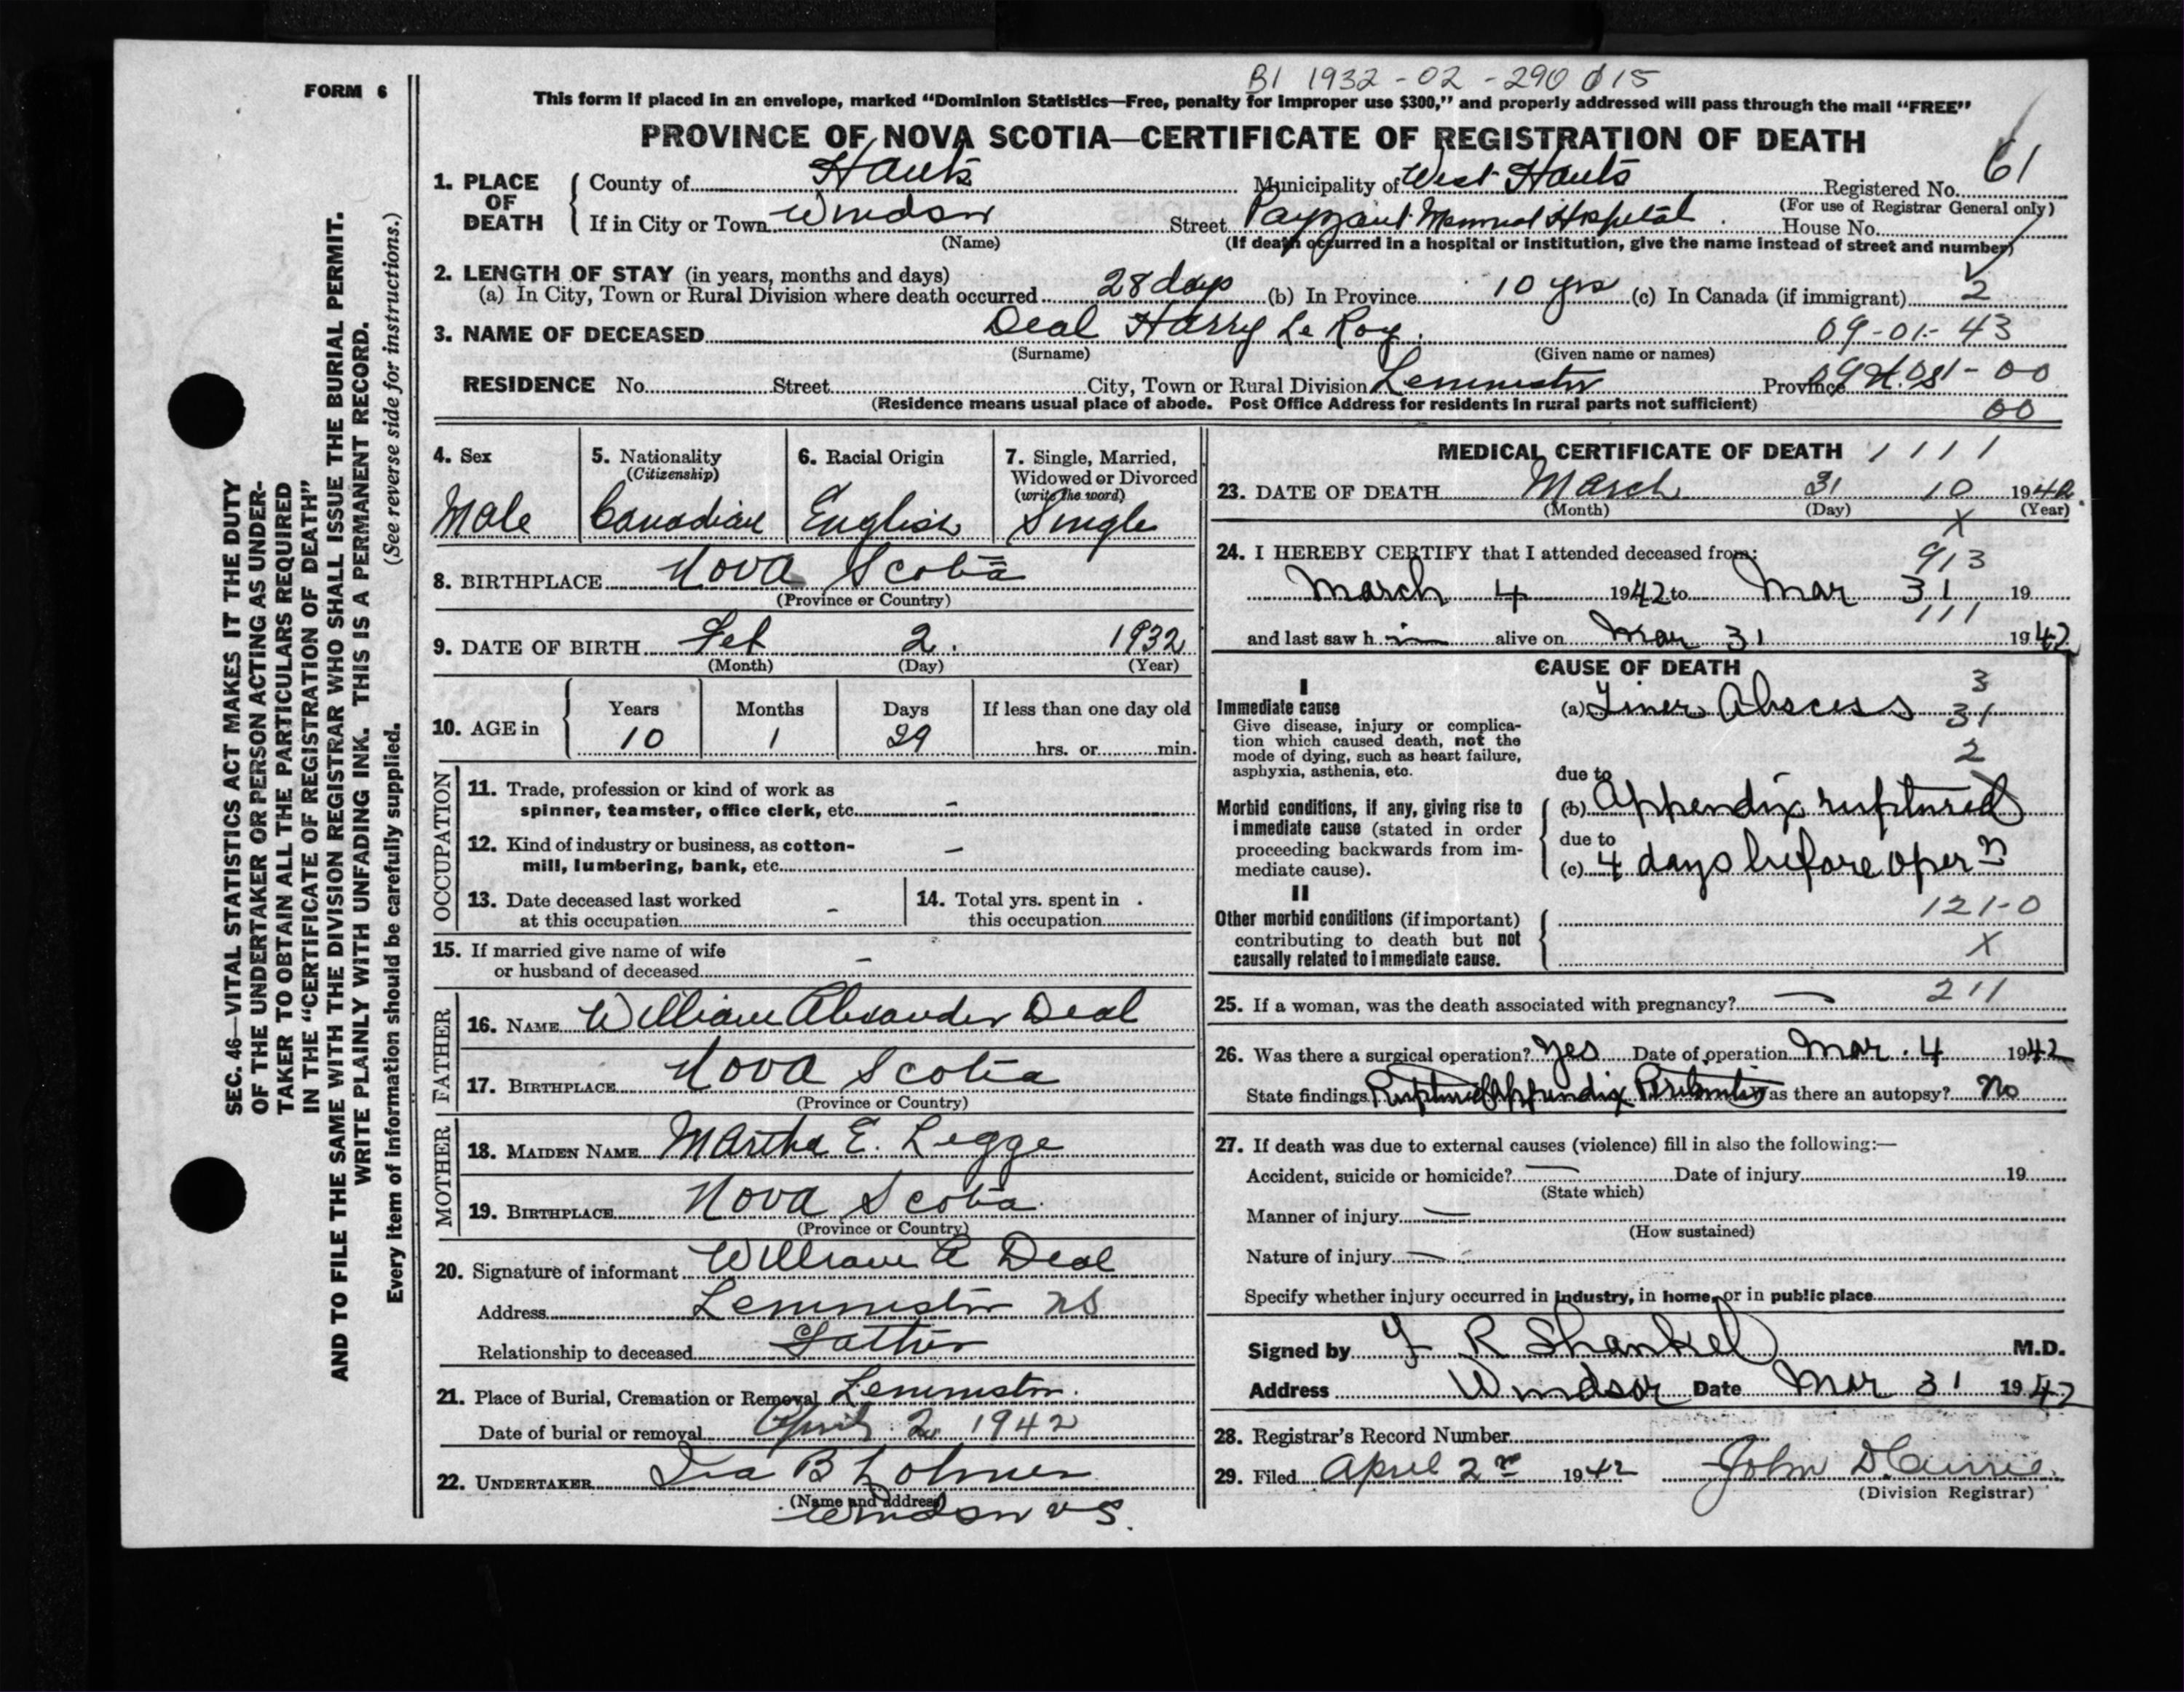 BI 1932-02-290015
FORM 6
This form if placed in an envelope, marked "Dominion Statistics—Free, penalty for improper use $300," and properly addressed will pass through the mail "FREE"
PROVINCE OF NOVA SCOTIA—CERTIFICATE OF REGISTRATION OF DEATH
1. PLACE OF DEATH
County of Hants Municipality of West Hants Registered No. 61
(For use of Registrar General only)
If in City or Town Windsor Street Payzant Memorial Hospital. House No.
(Name) (If death occurred in a hospital or institution, give the name instead of street and number)
2. LENGTH OF STAY (in years, months and days)
(a) In City, Town or Rural Division where death occurred 28 days (b) In Province 10 yrs (c) In Canada (if immigrant) 2
3. NAME OF DECEASED Deal Harry Le Roy. 09-01-43
(Surname) (Given name or names)
RESIDENCE No. Street City, Town or Rural Division Lemminster Province N.S. 00
(Residence means usual place of abode. Post Office Address for residents in rural parts not sufficient) 00
4. Sex Male
5. Nationality (Citizenship) Canadian
6. Racial Origin English
7. Single, Married, Widowed or Divorced (write the word) Single
8. BIRTHPLACE Nova Scotia
(Province or Country)
9. DATE OF BIRTH Feb 2. 1932
(Month) (Day) (Year)
10. AGE in Years Months Days If less than one day old
10 1 29 hrs. or min.
OCCUPATION
11. Trade, profession or kind of work as
spinner, teamster, office clerk, etc. –
12. Kind of industry or business, as cotton-
mill, lumbering, bank, etc. –
13. Date deceased last worked
at this occupation –
14. Total yrs. spent in
this occupation
15. If married give name of wife
or husband of deceased –
FATHER
16. NAME William Alexander Deal
17. BIRTHPLACE Nova Scotia
(Province or Country)
MOTHER
18. MAIDEN NAME Martha E. Legge
19. BIRTHPLACE Nova Scotia
(Province or Country)
20. Signature of informant William A Deal
Address Lemminster NS
Relationship to deceased Father
21. Place of Burial, Cremation or Removal Lemminster.
Date of burial or removal April 2 1942
22. UNDERTAKER Ira B Lohnes
(Name and address)
Windsor NS.
MEDICAL CERTIFICATE OF DEATH 1111
23. DATE OF DEATH March 31 10 1942
(Month) (Day) (Year)
X
24. I HEREBY CERTIFY that I attended deceased from: 913
March 4 1942 to Mar 31 19
111
and last saw h im alive on Mar 31 1942
CAUSE OF DEATH
I
Immediate cause
Give disease, injury or complica-
tion which caused death, not the
mode of dying, such as heart failure,
asphyxia, asthenia, etc.
(a) Liver Abscess 3
31
2
due to
Morbid conditions, if any, giving rise to
immediate cause (stated in order
proceeding backwards from im-
mediate cause).
(b) Appendix ruptured
due to
(c) 4 days before opern
II
Other morbid conditions (if important)
contributing to death but not
causally related to immediate cause.
121-0
X
25. If a woman, was the death associated with pregnancy? — 211
26. Was there a surgical operation? Yes Date of operation Mar. 4 1942
State findings Ruptured Appendix Peritonitis Was there an autopsy? No
27. If death was due to external causes (violence) fill in also the following:—
Accident, suicide or homicide? — Date of injury 19
(State which)
Manner of injury —
(How sustained)
Nature of injury —
Specify whether injury occurred in industry, in home, or in public place
Signed by F R Shankel M.D.
Address Windsor Date Mar 31 1942
28. Registrar's Record Number
29. Filed April 2nd 1942 John D Currie.
(Division Registrar)
SEC. 46—VITAL STATISTICS ACT MAKES IT THE DUTY
OF THE UNDERTAKER OR PERSON ACTING AS UNDER-
TAKER TO OBTAIN ALL THE PARTICULARS REQUIRED
IN THE "CERTIFICATE OF REGISTRATION OF DEATH"
AND TO FILE THE SAME WITH THE DIVISION REGISTRAR WHO SHALL ISSUE THE BURIAL PERMIT.
WRITE PLAINLY WITH UNFADING INK. THIS IS A PERMANENT RECORD.
Every item of information should be carefully supplied. (See reverse side for instructions.)